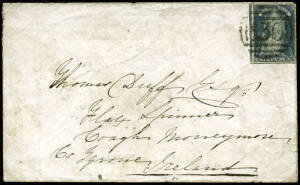 Thomas Duff Esqr
Flax Spinner
Coagh Moneymore
Co Tyrone Ireland